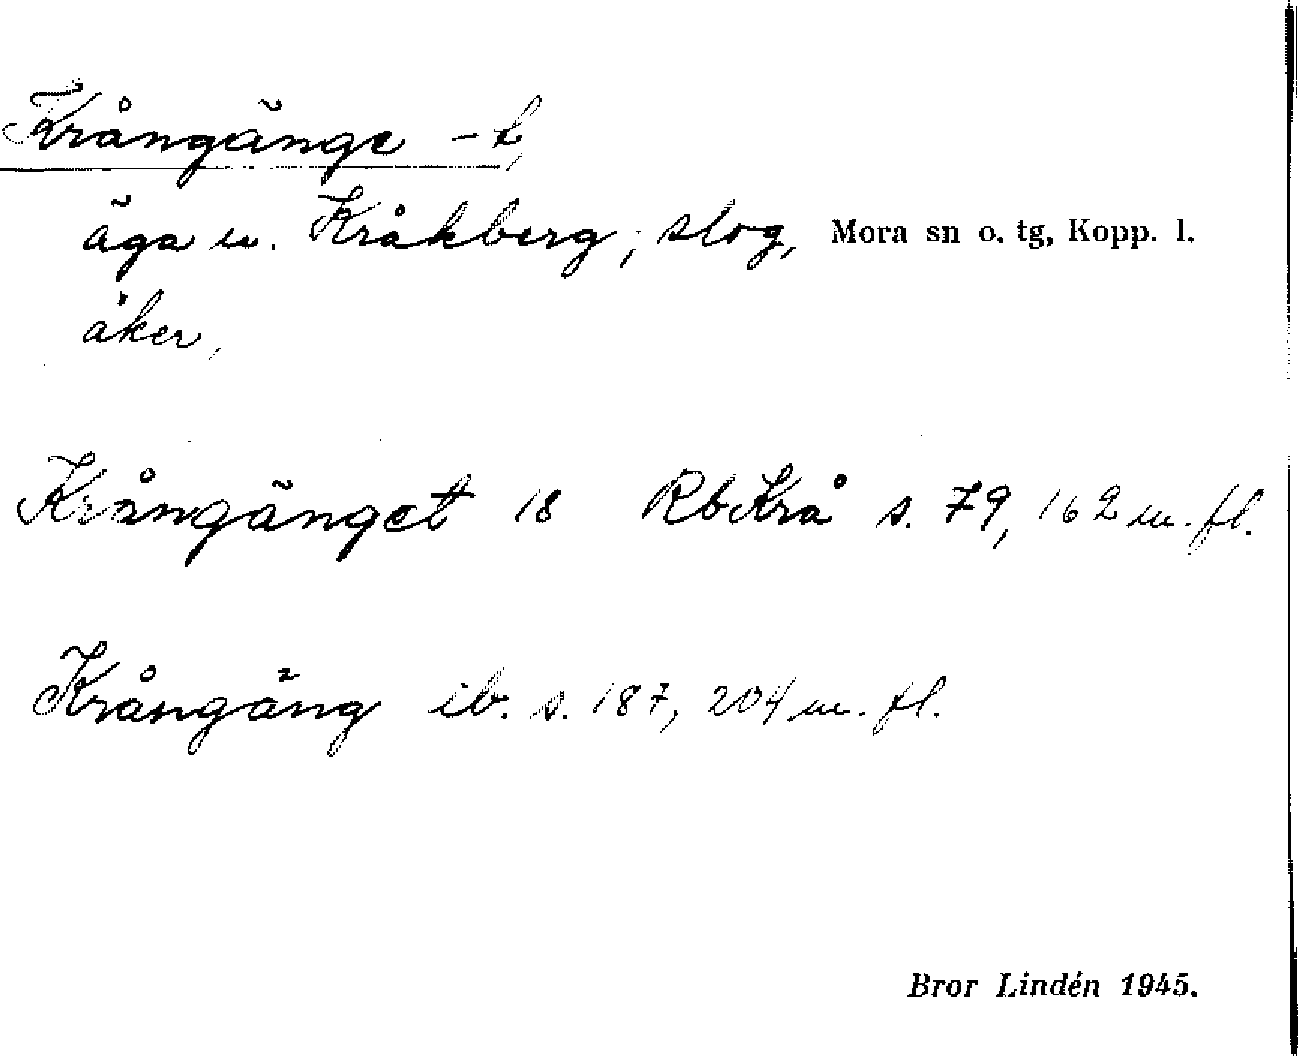 Krångänge -t,
äga u. Kråkberg; slog, Mora sn o. tg, Kopp. l.
åker,
Krångänget 18 RbKrå s. 79, 162 m. fl.
Krångäng ib. s. 187, 204 m. fl.
Bror Lindén 1945.